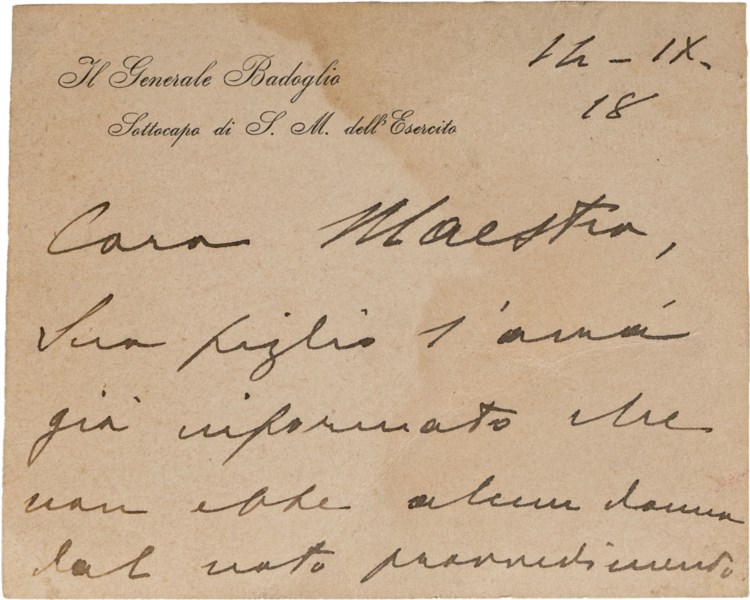 Il Generale Badoglio
Sottocapo di S. M. dell'Esercito
14 - IX -
18
Caro Maestro,
Suo figlio l'avrà
già informato che
non ebbe alcun danno
dal noto provvedimento